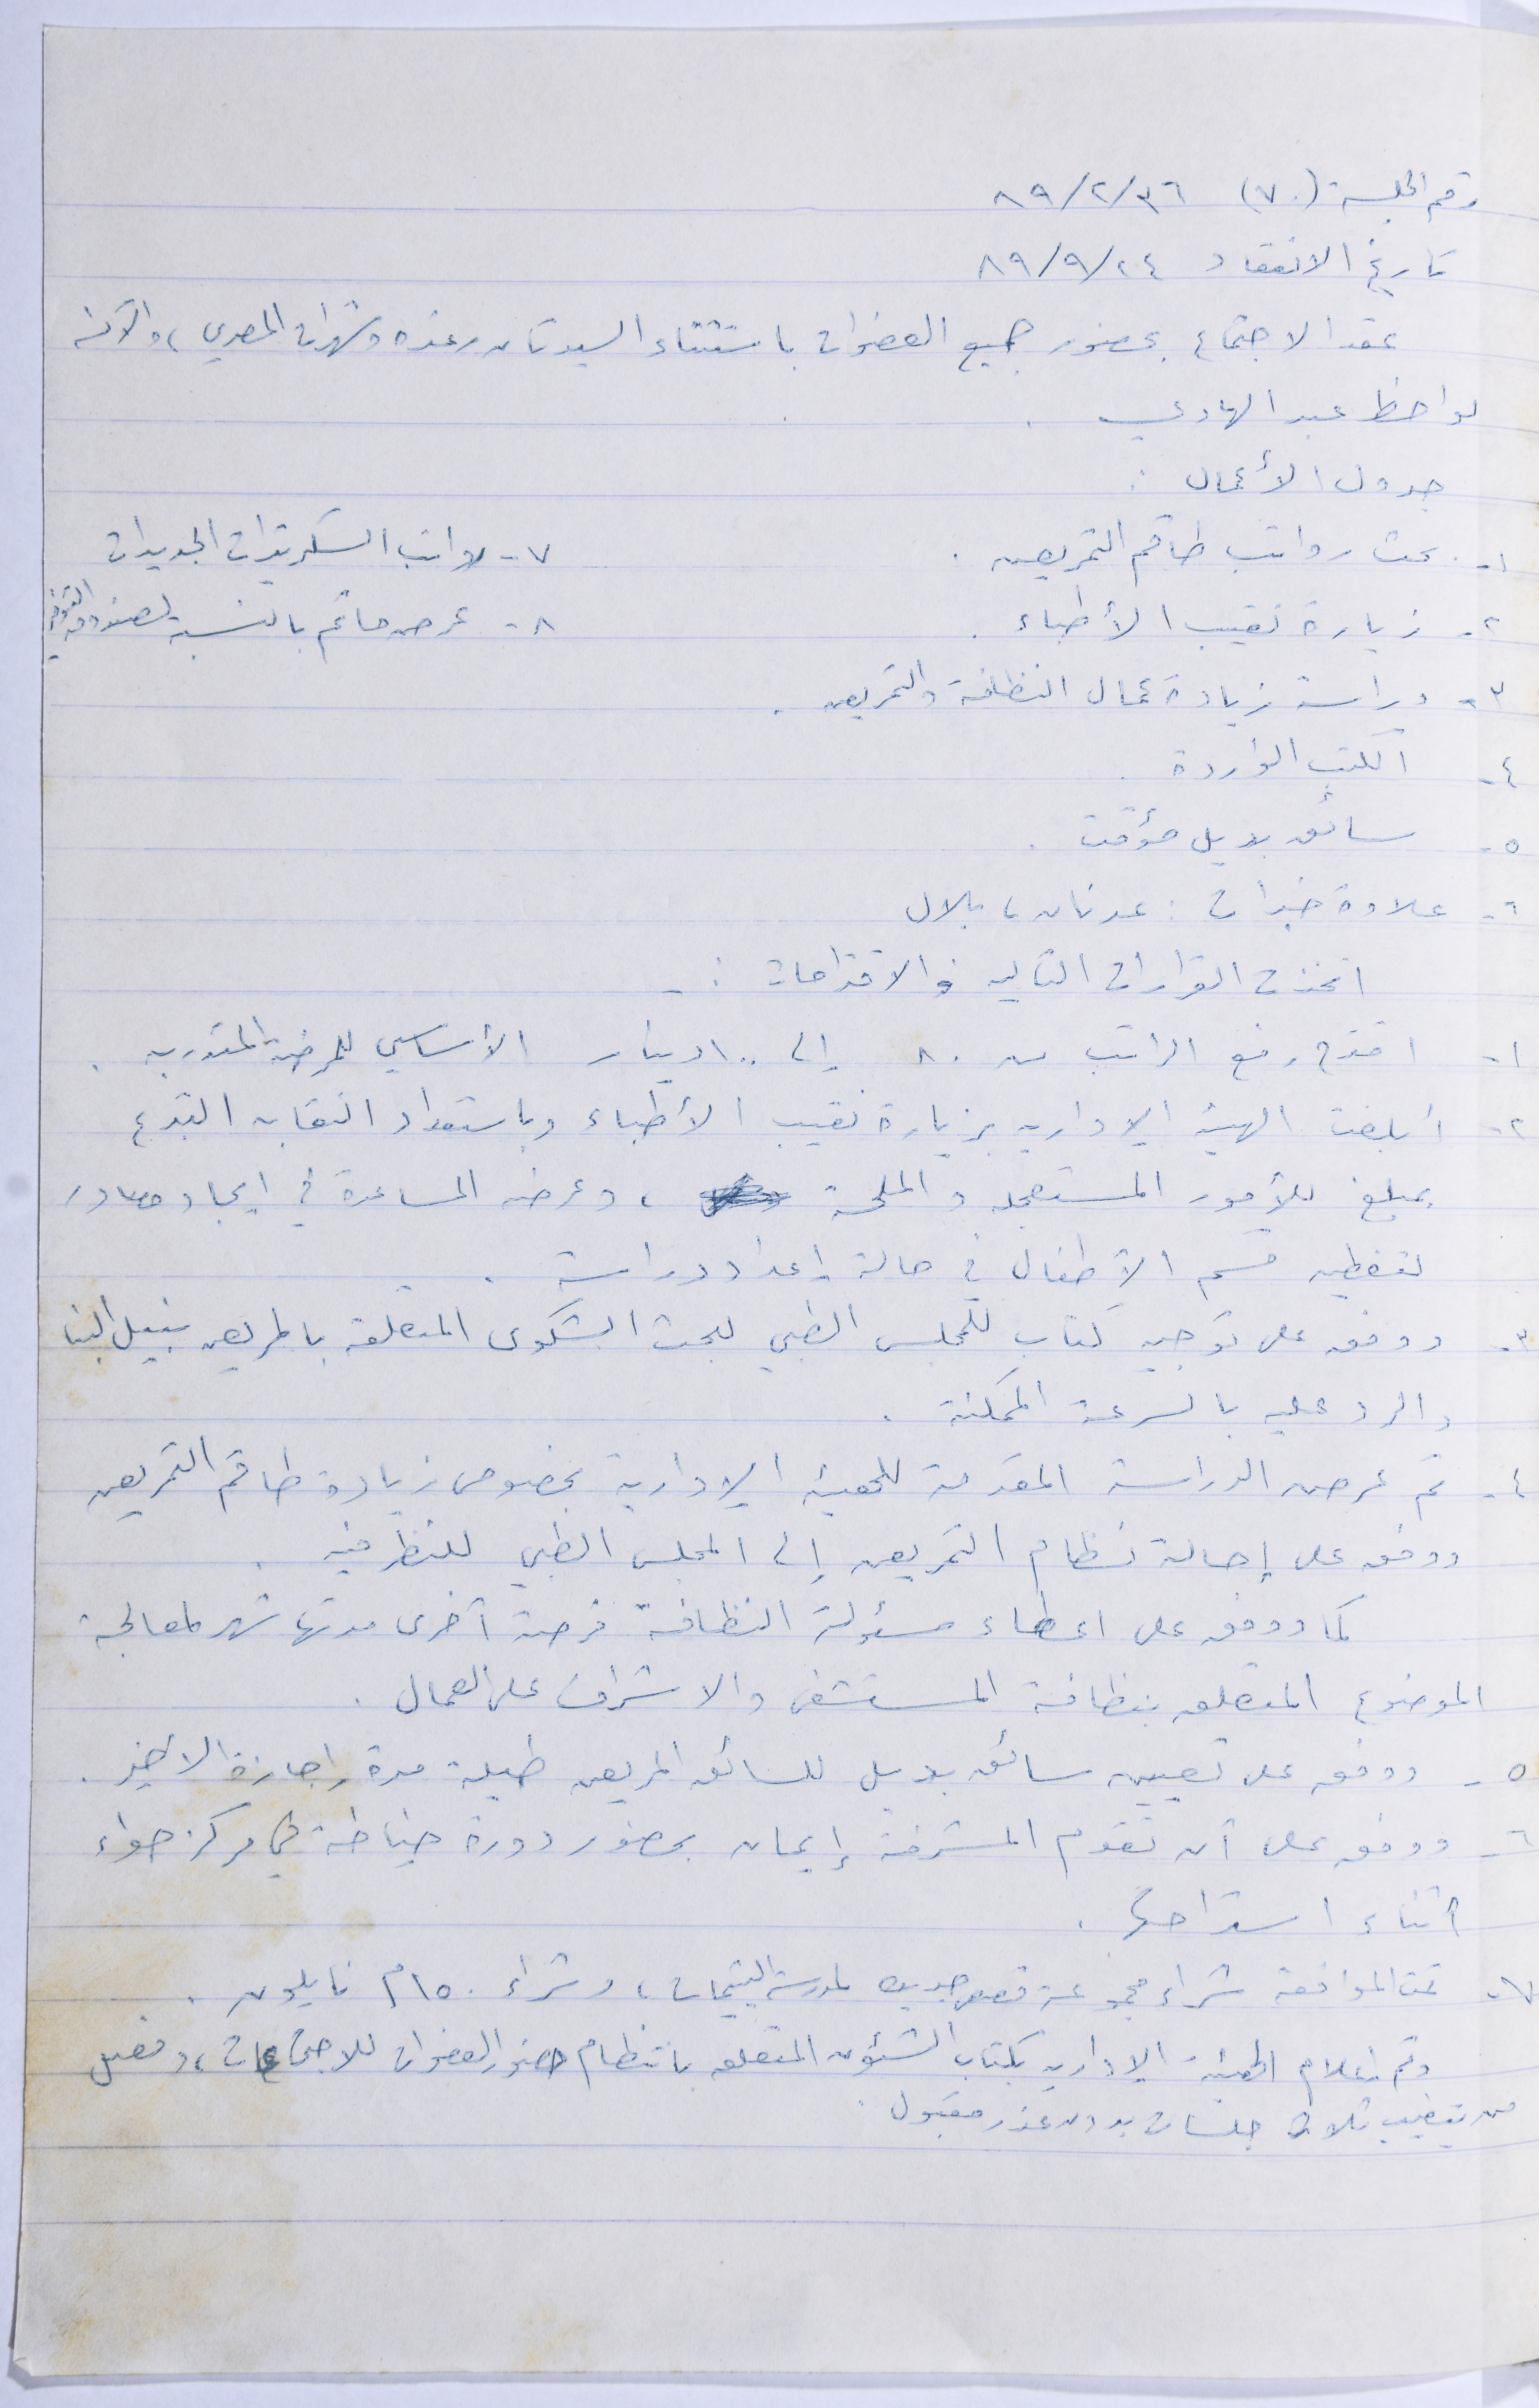 رقم الجلسة (٧٠) ٨٩/٢/٣٦
تاريخ الانعقاد ٨٩/٩/٢٤
عقد الاجتماع بحضور جميع العضوات باستثناء السيدتان رغده وشهرات المصري، والآنسه
لواحظ عبد الهادي .
جدول الأعمال :
١- بحث رواتب طاقم التمريض .
٢- زيارة نقيب الأطباء .
٣- دراسة زيادة عمال النظافة والتمريض .
٤- الكتب الواردة .
٥- سائق بديل مؤقت .
٦- علاوة خبرات : عدنان ، بلال
٧- رواتب السكرتيرات الجديدات
٨- عرض حاتم بالنسبة لصندوق التوفير
اتخذت القرارات التاليه والاقتراحات :-
١- اقترح رفع الراتب من ٨٠ إلى ١٠٠ دينار الأساسي للممرضه المتدربه .
٢- أبلغت الهيئة الإداريه بزيارة نقيب الأطباء وباستعداد النقابه التبرع
بمبلغ للأمور المستعجله والملحة ، وعرضه المساعدة في ايجاد مصادر
لتغطيه قسم الأطفال في حالة إعداد دراسة .
٣- ووفق على توجيه كتاب للمجلس الطبي لبحث الشكوى المتعلقه بالمريض نبيل البنا
والرد عليه بالسرعة الممكنة .
٤- تم عرض الدراسة المقدمة للهيئة الإدارية بخصوص زيادة طاقم التمريض
ووفق على إحالة نظام التمريض إلى المجلس الطبي للنظر فيه .
كما ووفق على اعطاء مسؤولة النظافة فرصة أخرى مدتها شهر لمعالجة
الموضوع المتعلق بنظافة المستشفى والاشراف على العمال .
٥- ووفق على تعيين سائق بديل للسائق المريض طيلة مدة إجازة الأخير .
٦- ووفق على أن تقوم المشرفة إيمان بحضور دورة خياطة في مركز حواء
أثناء استراحتها .
٧- تمت الموافقة شراء مجموعة قصص جديده لمدرسة اليتيمات ، وشراء ١٥٠م نايلون .
وتم إعلام الهيئة الإداريه بكتاب الشؤون المتعلق بانتظام حضور العضوات للاجتماعات ، وفصل
من يتغيب ثلاث جلسات بدون عذر مقبول .